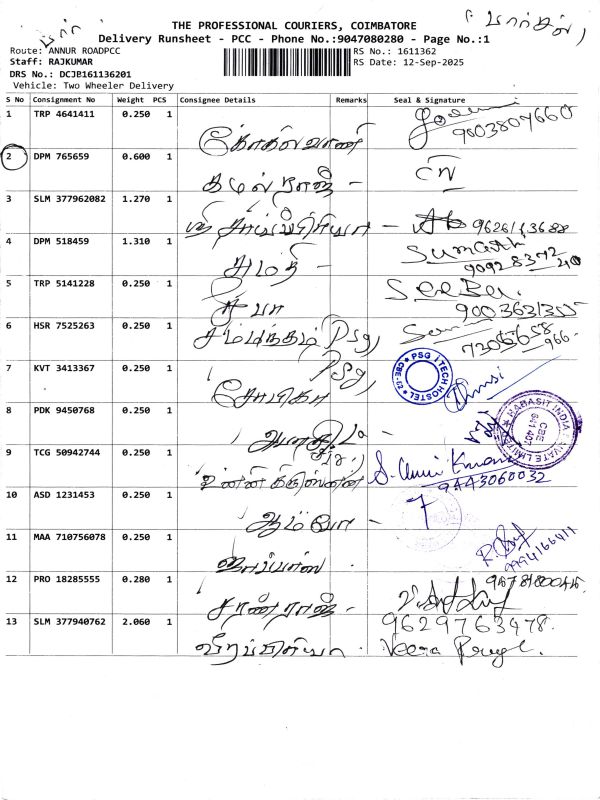 (பார்சல்)
THE PROFESSIONAL COURIERS, COIMBATORE
Delivery Runsheet - PCC - Phone No.:9047080280 - Page No.:1
Route: ANNUR ROADPCC RS No.: 1611362
Staff: RAJKUMAR RS Date: 12-Sep-2025
DRS No.: DCJB161136201
Vehicle: Two Wheeler Delivery
S No Consignment No Weight PCS Consignee Details Remarks Seal & Signature
1 TRP 4641411 0.250 1
கோகிலவாணி 9003804660
2 DPM 765659 0.600 1
தமிழ்ராஜ் -
3 SLM 377962082 1.270 1
4 DPM 518459 1.310 1 Sumathi
சுமதி -
5 TRP 5141228 0.250 1
சீபா 9003631355
6 HSR 7525263 0.250 1
சம்பந்தம் Psg,
7 KVT 3413367 0.250 1 Psg, PSG ITECH HOSTEL
சோபிகா
8 PDK 9450768 0.250 1 HABASIT INDIA PRIVATE LIMITED
CBE
641 407
9 TCG 50942744 0.250 1
உன்னி கிருஸ்ணன் S. Unni Krishnan
9443060032
10 ASD 1231453 0.250 1 7
ஆம்போ -
11 MAA 710756078 0.250 1
9994166411
12 PRO 18285555 0.280 1
சரண்ராஜ் -
13 SLM 377940762 2.060 1 9629763478.
வீரப்பிரியா Veera